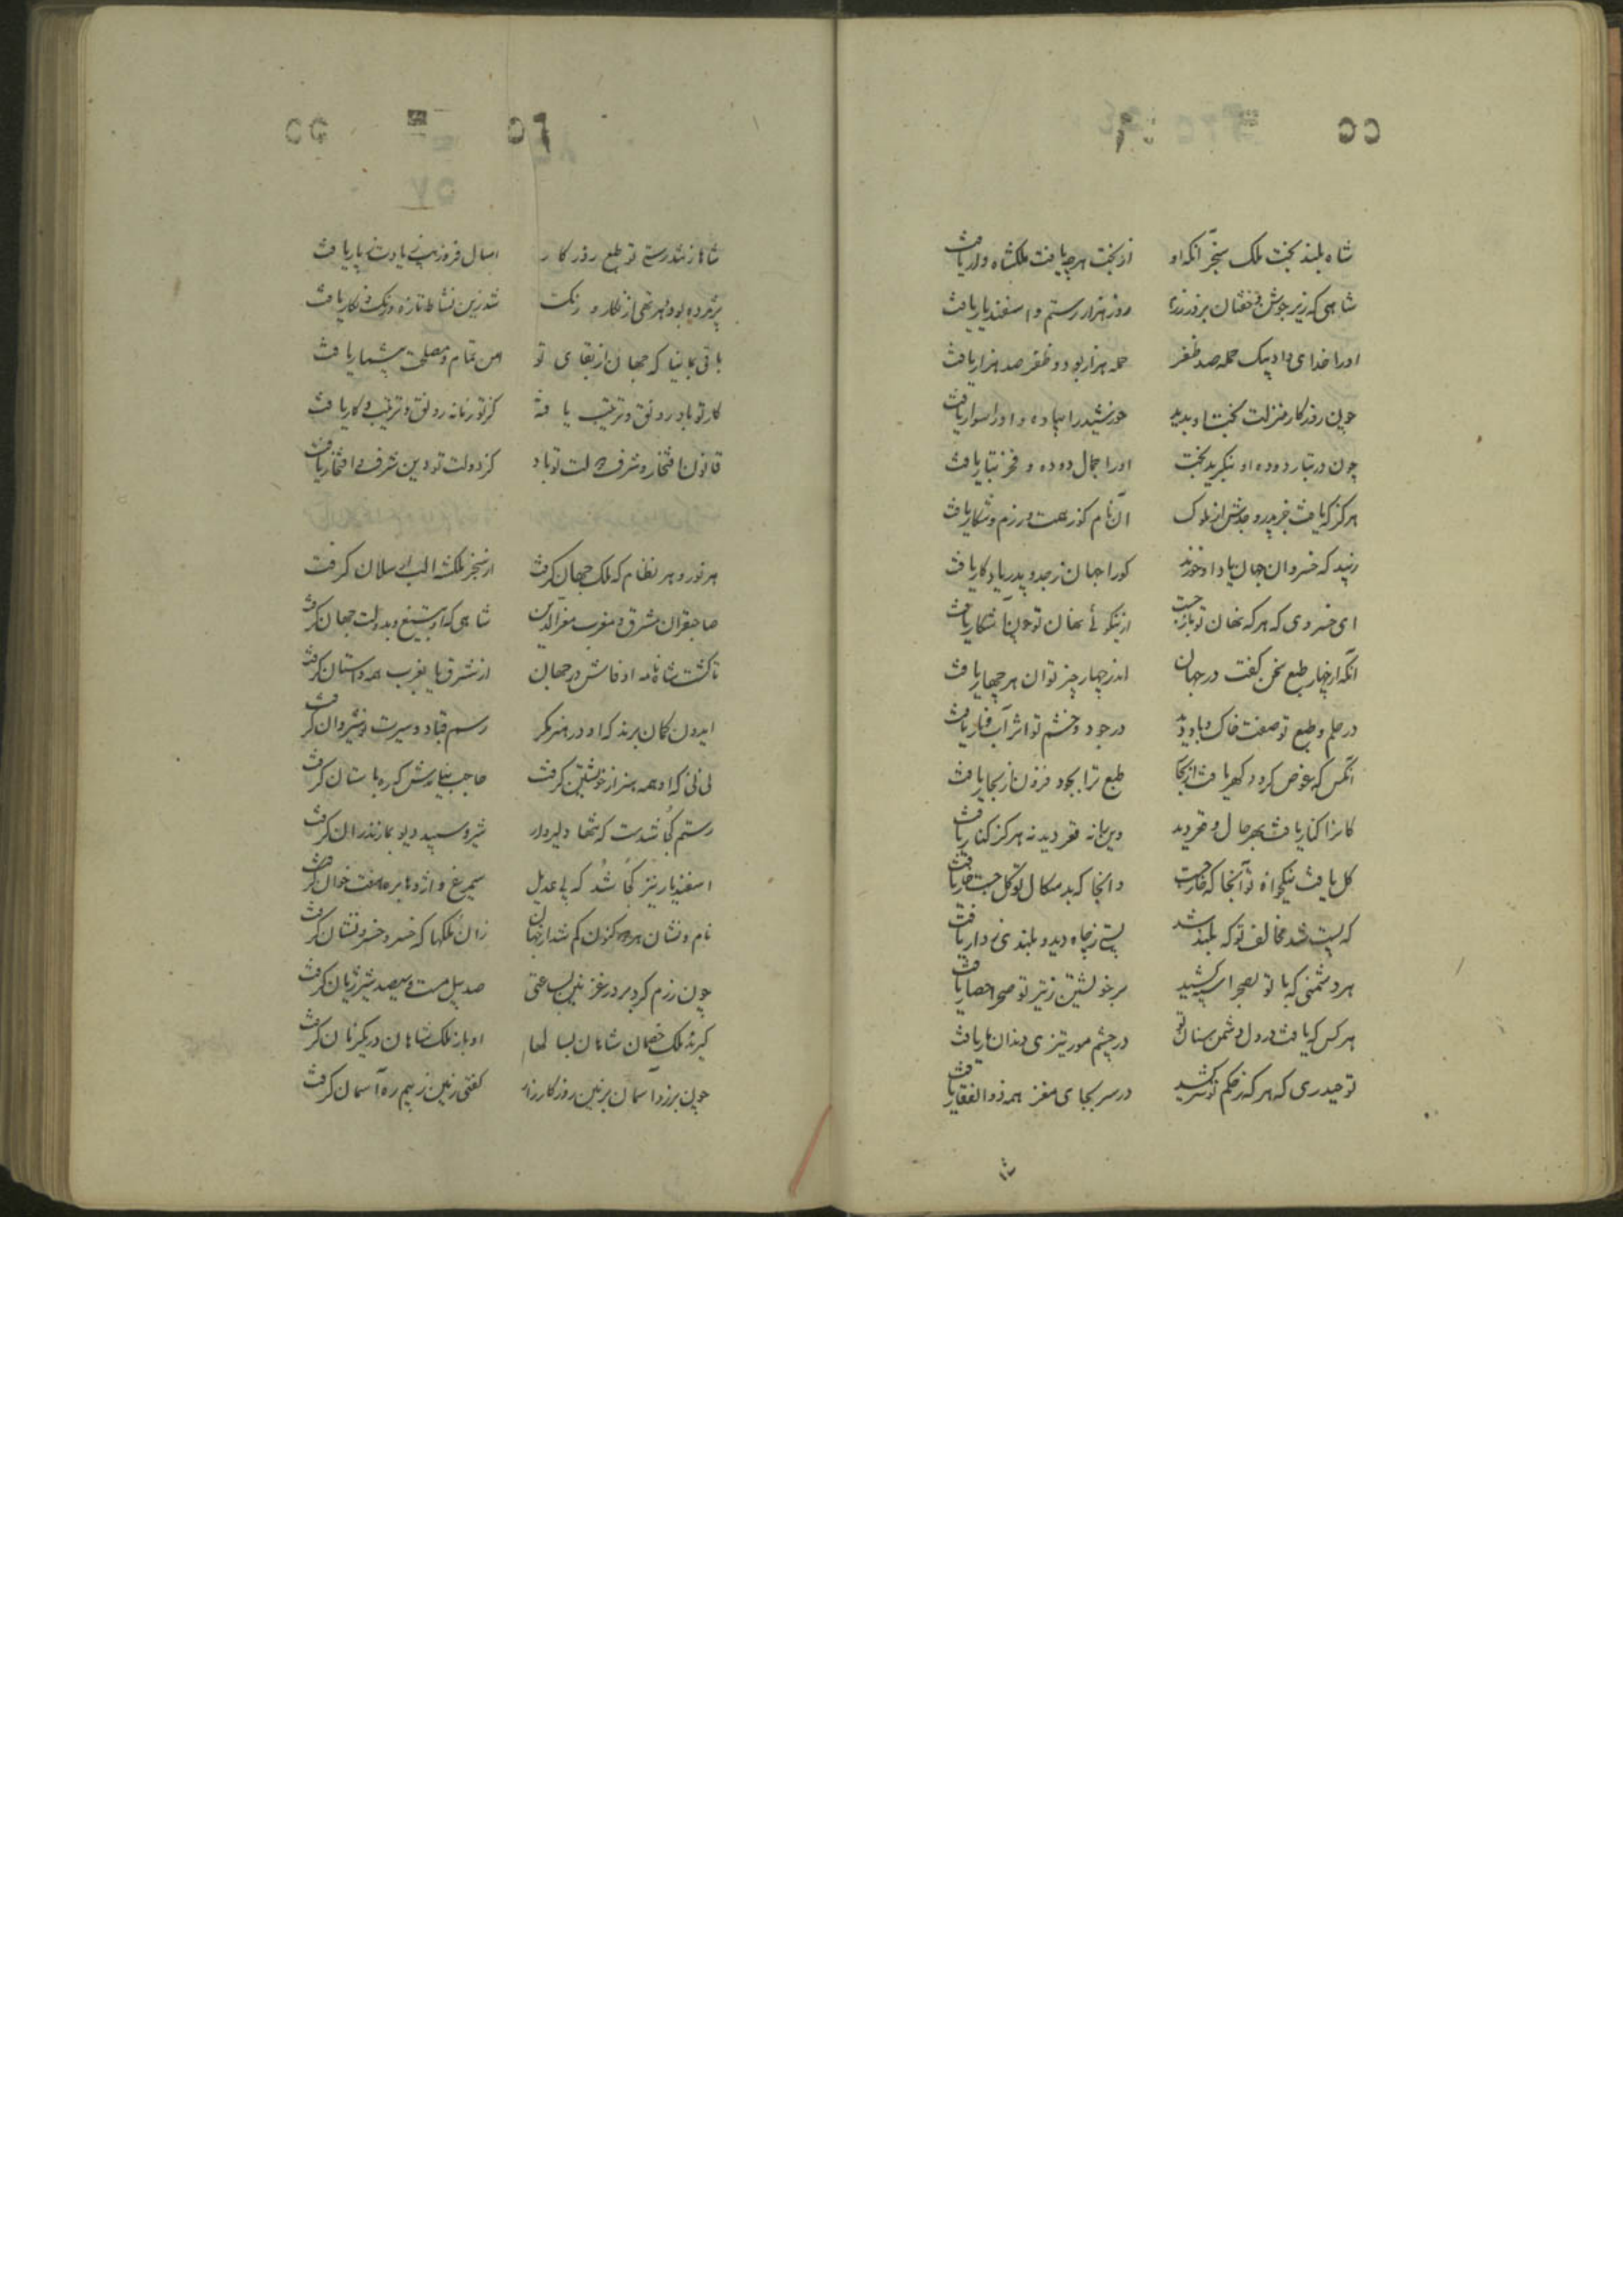 شاه بلند بخت ملک سنجر آنکه او از بخت هرچه یافت ملکشاه وار یافت
شاهی که زیر جوشن و خفتان بروز رزم روز هزار رستم و اسفندیار یافت
اورا خدای داد بیک حمله صد ظفر حمله هزار بود و ظفر صد هزار یافت
چون روزکار منزلت بخت او بدید خورشید را پیاده و اورا سوار یافت
چون در تبار دوده او بنکرید بخت اورا جمال دوده و فخر تبار یافت
هرکز که یافت جز پدر و جدش از ملوک آن نام کوز بخت در رزم و شکار یافت
زیبد که خسروان جهان یاد او خورند کورا جهان ز جد و پدر یادکار یافت
ای خسروی که هرکه نهان تو باز جست از نیکوئی نهان تو چون آشکار یافت
آنکه از چهار طبع سخن کفت در جهان اندر چهار چیز توان هر چهار یافت
در حلم و طبع تو صفت خاک و باد دید در جود و خشم تو اثر آب و نار یافت
آنکس که عرض کرد کهر یافت از بحار طبع ترا بجود فزون از بحار یافت
کانرا کنار یافت بهر حال و قعر دید وین را نه قعر دید نه هرکز کنار یافت
کل یافت نیکخواه تو آنجا که خار جست وانجا که بدسکال تو کل جست خار یافت
که پست شد مخالف تو که بلند شد پستی ز چاه دید و بلندی ز دار یافت
هر دشمنی که با تو بصحرا سپه کشید بر خویشتن ز تیر تو صحرا حصار یافت
هر کس که یافت در دل دشمن سنان تو در چشم مور تیزی دندان مار یافت
تو حیدری که هرکه ز حکم تو سر کشید در سر بجای مغز همه ذوالفقار یافت
شاها ز تندرستی تو طبع روزکار امسال فر و زیب زیادت ز پار یافت
پژمرده بود و بهر تهی از نکار و رنک شد زین نشاط تازه و رنک و نکار یافت
باقی بمانیا که جهان از بقای تو امن تمام و مصلحت بیشمار یافت
کار تو باد رونق و ترتیب یافته کز تو زمانه رونق و ترتیب و کار یافت
قانون افتخار و شرف دولت تو باد کز دولت تو دین شرف و افتخار یافت
هر نور و هر نظام که ملک جهان کرفت از سنجر ملکشه الب ارسلان کرفت
صاحبقران مشرق و مغرب معزالدین شاهی که او بتیغ و بدولت جهان کرفت
تا کشت شاه نامه او فاش در جهان از شرق تا بغرب همه داستان کرفت
ایدون کمان برند که او در هنر مکر رسم قباد و سیرت نوشیروان کرفت
نی نی که او همه هنر از خویشتن کرفت
رستم کجا شدست که تنها دلیروار شیر و سپید دیو بمازندران کرفت
اسفندیار نیز کجا شد که بی عدیل سیمرغ و اژدها بره هفت خوان کرفت
نام و نشان هر دو کنون کم شد از جهان زان ملکها که خسرو خسرو نشان کرفت
چون رزم کرد بر در غزنین بساعتی صد پیل مست و سیصد شیر ژیان کرفت
کیرند ملک خصمان شاهان بسالها او باز ملک شاهان در یکزمان کرفت
چون برزد آسمان بزمین روز کارزار کفتی زمین ز بیم ره آسمان کرفت